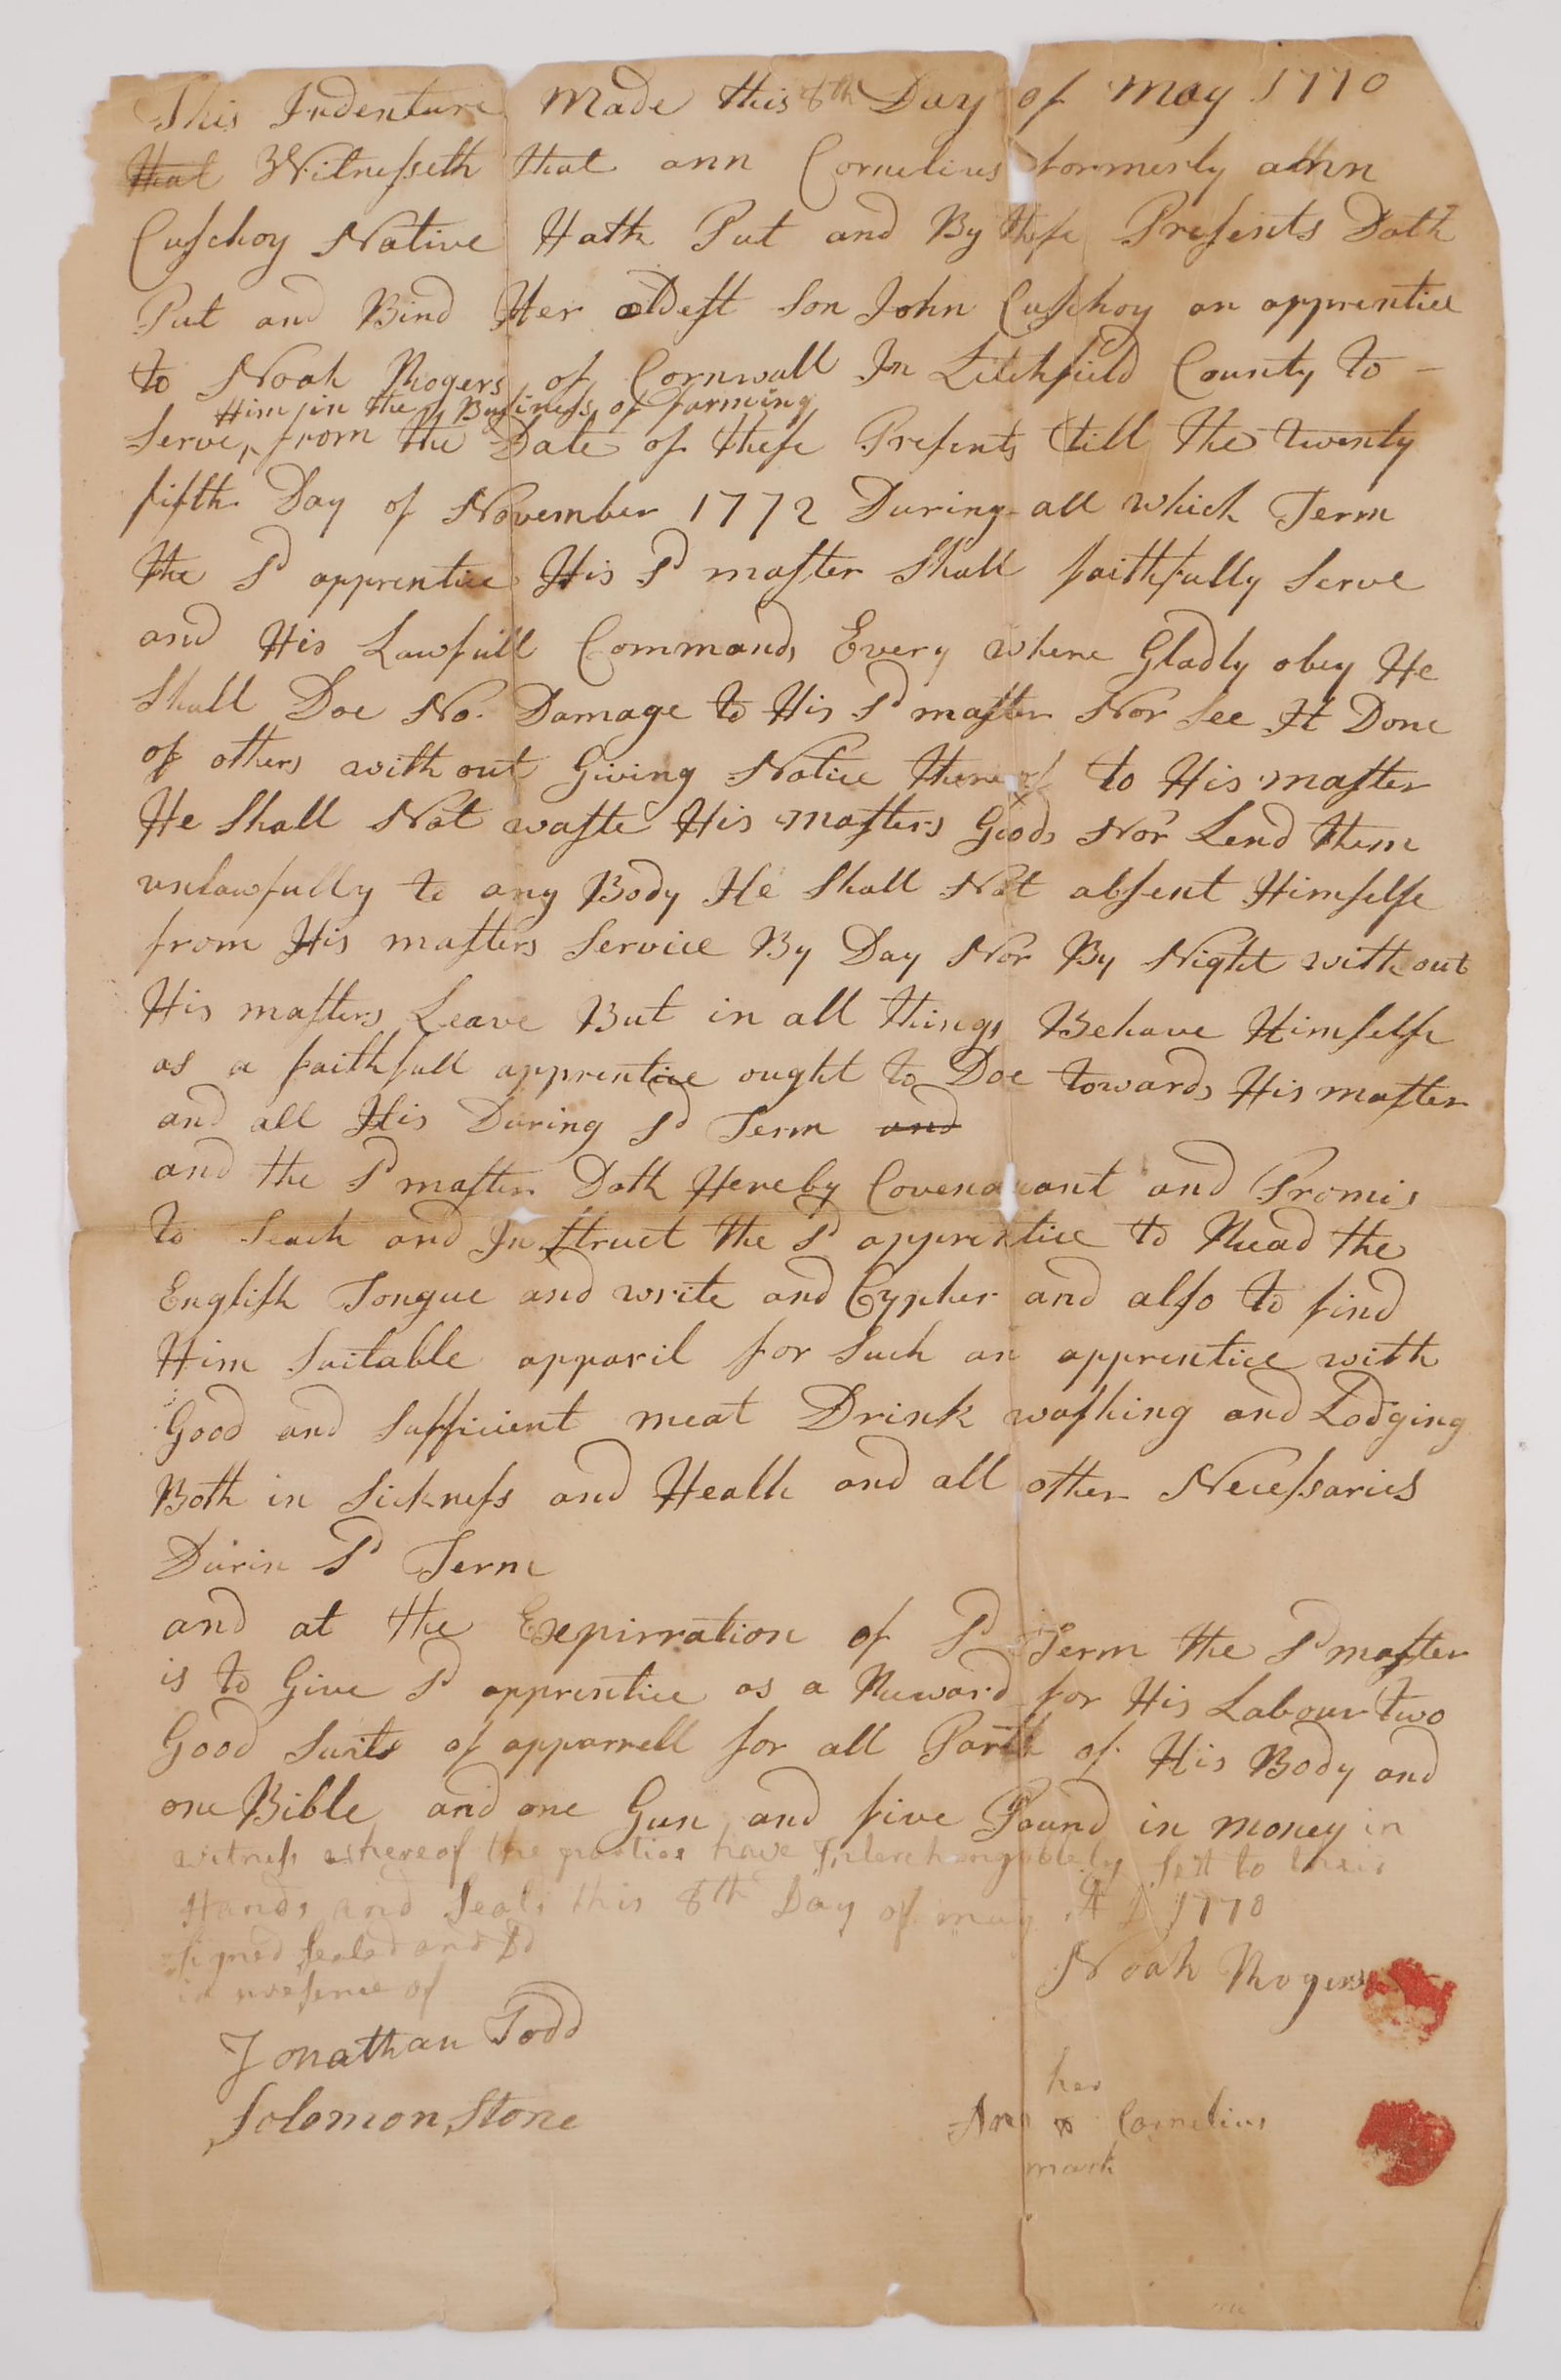 This Indenture Made this 8th Day of May 1770
that Witnesseth that ann Cornelius formerly ann
Cuschoy Native Hath Put and By these Presents Doth
Put and Bind Her oldest Son John Cuschoy an apprentice
to Noah Rogers of Cornwall In Litchfield County to
Him in the Business of farming
Serve, from the Date of these Presents till the twenty
fifth Day of November 1772 During all which Term
the Sd apprentice His Sd master Shall faithfully Serve
and His Lawfull Commands Every where Gladly obey He
Shall Doe No Damage to His Sd master Nor See It Done
of others with out Giving Notice thereof to His master
He Shall Not waste His masters Goods Nor Lend them
unlawfully to any Body He Shall Not absent Himselfe
from His masters Service By Day Nor By Night with out
His masters Leave But in all things Behave Himselfe
as a faithfull apprentice ought to Doe towards His master
and all His During Sd Term and
and the Sd master Doth Hereby Covenant and Promis
to teach and Instruct the Sd apprentice to Read the
English Tongue and write and Cypher and also to find
Him Suitable apparil for Such an apprentice with
Good and Sufficient meat Drink washing and Lodging
Both in Sickness and Health and all other Necessaries
Durin Sd Term
and at the Expirration of Sd Term the Sd master
is to Give Sd apprentice as a Reward for His Labour two
Good Suits of apparrell for all Parts of His Body and
one Bible and one Gun and five Pound in money in
witness whereof the parties have Interchangablely Sett to their
Hands and Seals this 8th Day of may A D 1770
Signed Sealed and Dd
in presence of
Noah Rogers
Jonathan Todd
Solomon Stone
her
Ann x Cornelius
mark